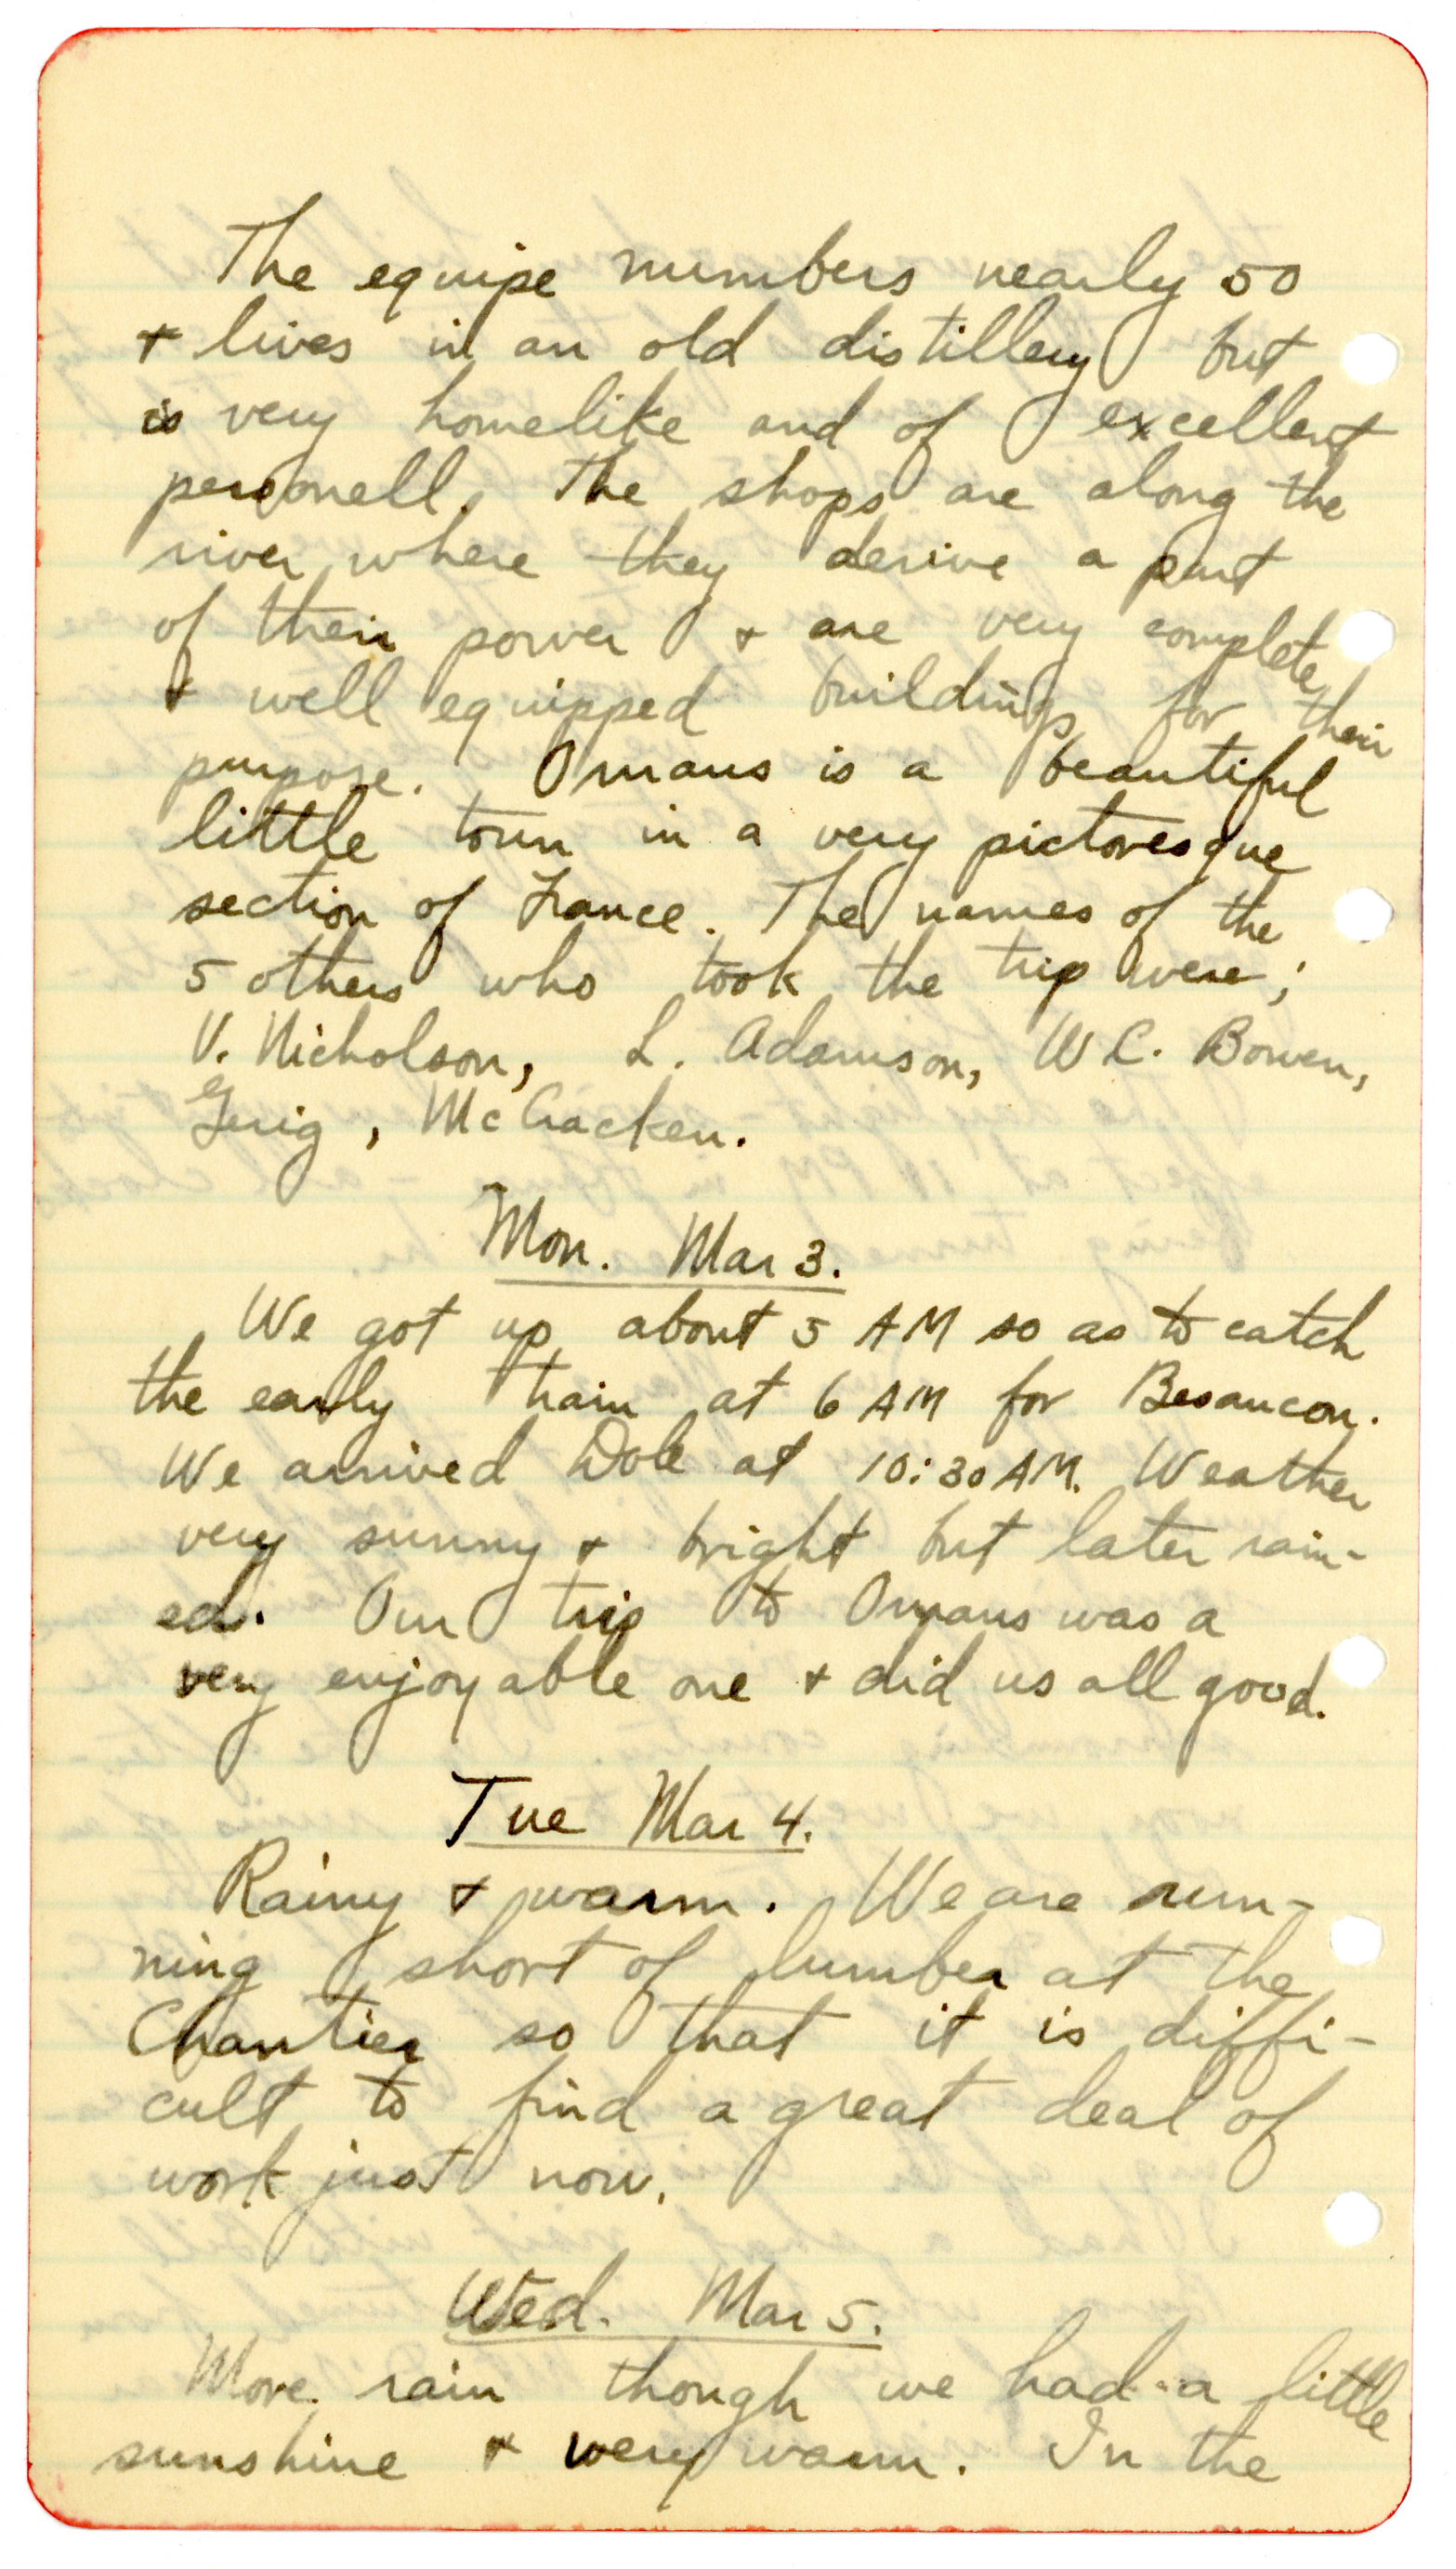 The equipe numbers nearly 50
+ lives in an old distillery but
is very homelike and of excellent
personell. The shops are along the
river where they derive a part
of their power + are very complete
+ well equipped buildings for their
purpose. Ornans is a beautiful
little town in a very pictoresque
section of France. The names of the
5 others who took the trip were;
V. Nicholson, L. Adamson, W C. Bowen,
Gerig, McCracken.
Mon. Mar 3.
We got up about 5 AM so as to catch
the early train at 6 AM for Besancon.
We arrived Dole at 10:30 AM. Weather
very sunny + bright but later rain-
ed. Our trip to Ornans was a
very enjoyable one + did us all good.
Tue Mar 4.
Rainy + warm. We are run-
ning short of lumber at the
Chantier so that it is diffi-
cult to find a great deal of
work just now.
Wed. Mar 5.
More rain though we had a little
sunshine + very warm. In the